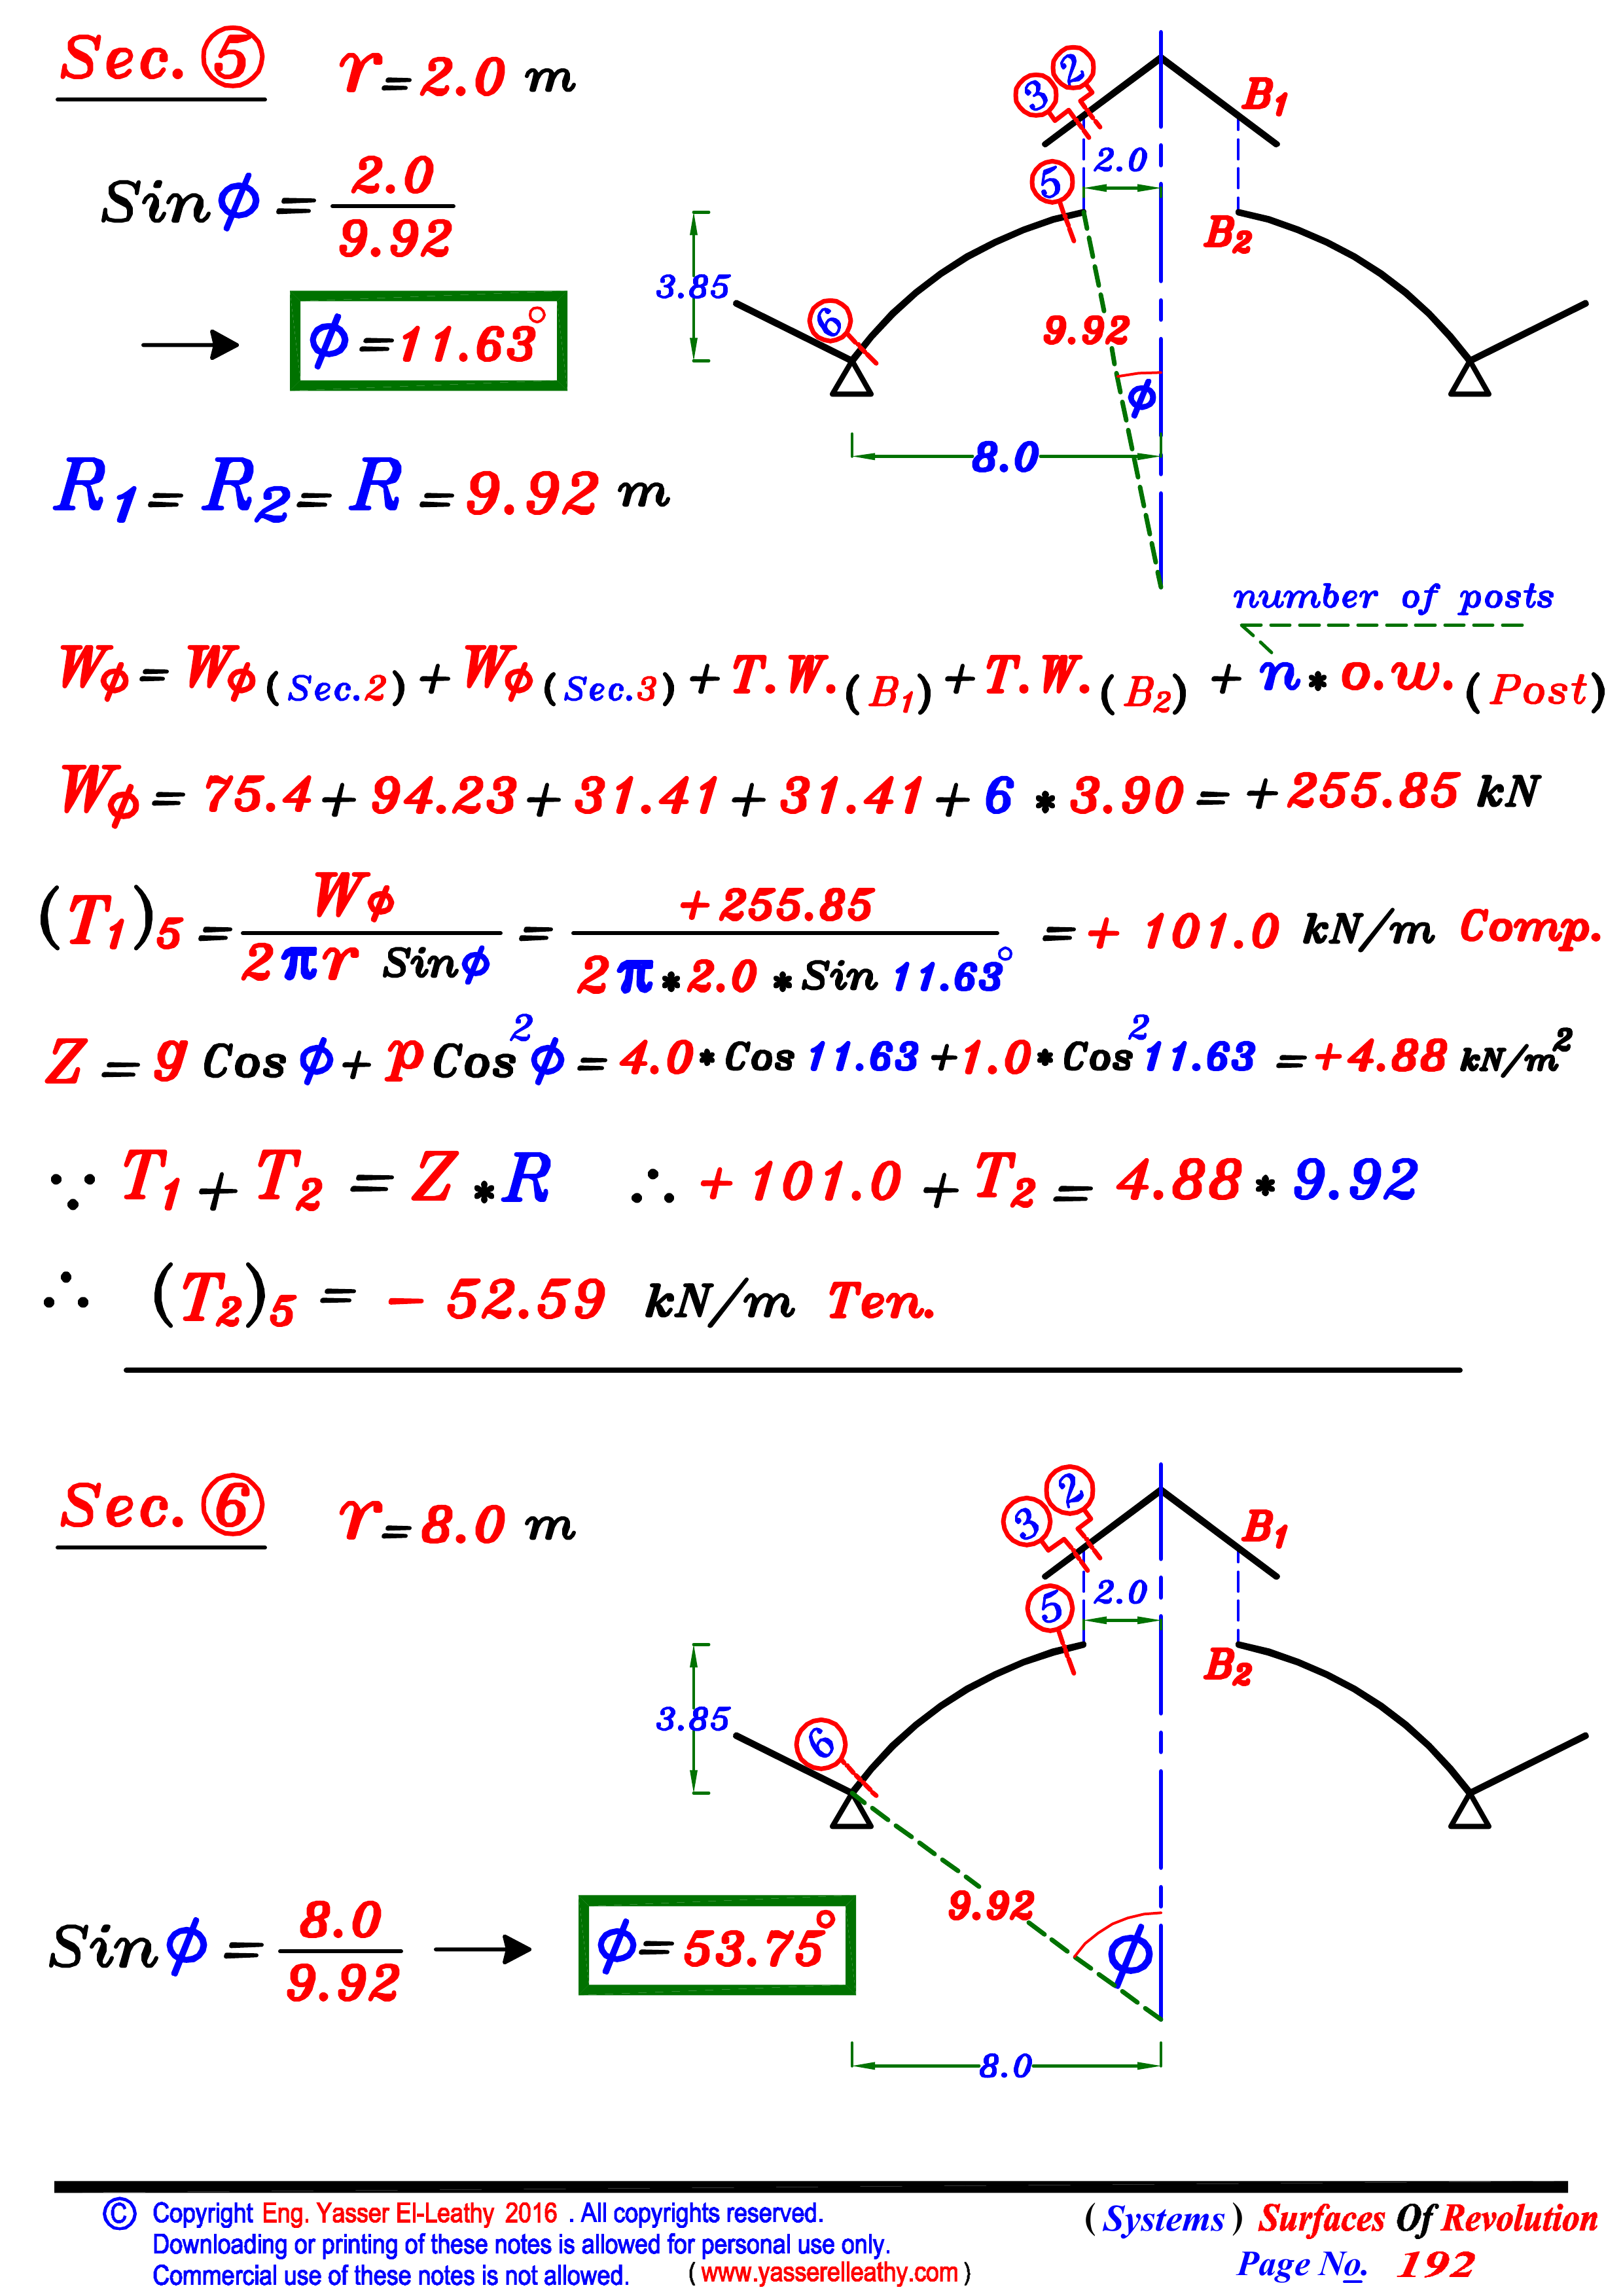 Sec. 5 r = 2.0 m
Sin ϕ = 2.0 / 9.92
→ ϕ = 11.63°
3 2 B1
2.0
5
B2
3.85
6
9.92
ϕ
8.0
R1 = R2 = R = 9.92 m
number of posts
Wϕ = Wϕ (Sec.2) + Wϕ (Sec.3) + T.W. (B1) + T.W. (B2) + n * o.w. (Post)
Wϕ = 75.4 + 94.23 + 31.41 + 31.41 + 6 * 3.90 = +255.85 kN
(T1)5 = Wϕ / 2πr Sinϕ = +255.85 / 2π * 2.0 * Sin 11.63° = + 101.0 kN/m Comp.
Z = g Cos ϕ + p Cos² ϕ = 4.0 * Cos 11.63 + 1.0 * Cos² 11.63 = +4.88 kN/m²
∵ T1 + T2 = Z * R ∴ + 101.0 + T2 = 4.88 * 9.92
∴ (T2)5 = - 52.59 kN/m Ten.
Sec. 6 r = 8.0 m
3 2 B1
2.0
5
B2
3.85
6
9.92
ϕ
Sin ϕ = 8.0 / 9.92 → ϕ = 53.75°
8.0
© Copyright Eng. Yasser El-Leathy 2016 . All copyrights reserved.
Downloading or printing of these notes is allowed for personal use only.
Commercial use of these notes is not allowed. ( www.yasserelleathy.com )
( Systems ) Surfaces Of Revolution
Page No. 192